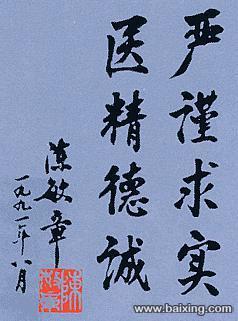 严谨求实
医精德诚
陈敏章
一九九一年八月
www.baixing.com